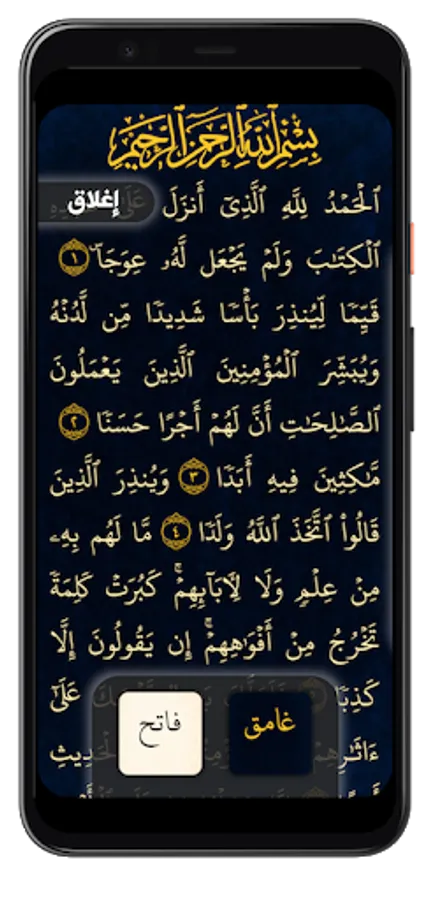 بِسْمِ ٱللَّهِ ٱلرَّحْمَٰنِ ٱلرَّحِيمِ
ٱلْحَمْدُ لِلَّهِ ٱلَّذِىٓ أَنزَلَ عَلَىٰ
إغلاق
ٱلْكِتَٰبَ وَلَمْ يَجْعَل لَّهُۥ عِوَجَاۜ ١
قَيِّمًا لِّيُنذِرَ بَأْسًا شَدِيدًا مِّن لَّدُنْهُ
وَيُبَشِّرَ ٱلْمُؤْمِنِينَ ٱلَّذِينَ يَعْمَلُونَ
ٱلصَّٰلِحَٰتِ أَنَّ لَهُمْ أَجْرًا حَسَنًا ٢
مَّٰكِثِينَ فِيهِ أَبَدًا ٣ وَيُنذِرَ ٱلَّذِينَ
قَالُوا۟ ٱتَّخَذَ ٱللَّهُ وَلَدًا ٤ مَّا لَهُم بِهِۦ
مِنْ عِلْمٍ وَلَا لِءَابَآئِهِمْ ۚ كَبُرَتْ كَلِمَةً
تَخْرُجُ مِنْ أَفْوَٰهِهِمْ ۚ إِن يَقُولُونَ إِلَّا
كَذِبًا عَلَىٰٓ
غامق
فاتح
ءَاثَٰرِهِمْ ٱلْحَدِيثِ